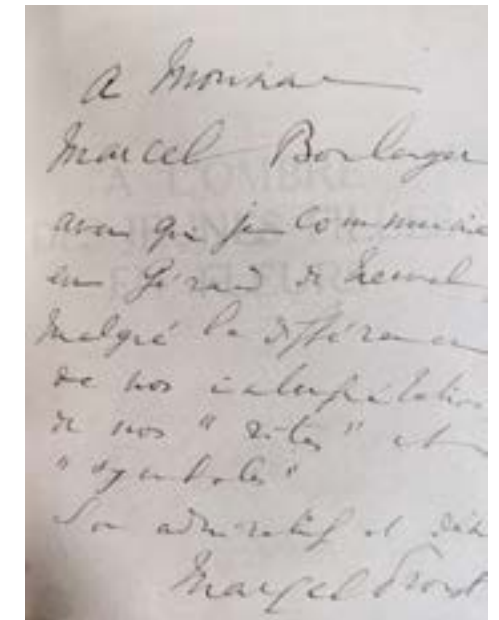 a Monsieur
Marcel Boulenger
avec qui je communie
en Gérard de Nerval,
malgré la différence
de nos interprétations
de nos "rites" et
"symboles"
Son admiratif et
Marcel Proust
A L'OMBRE
JEUNES FILLES
EN FLEURS